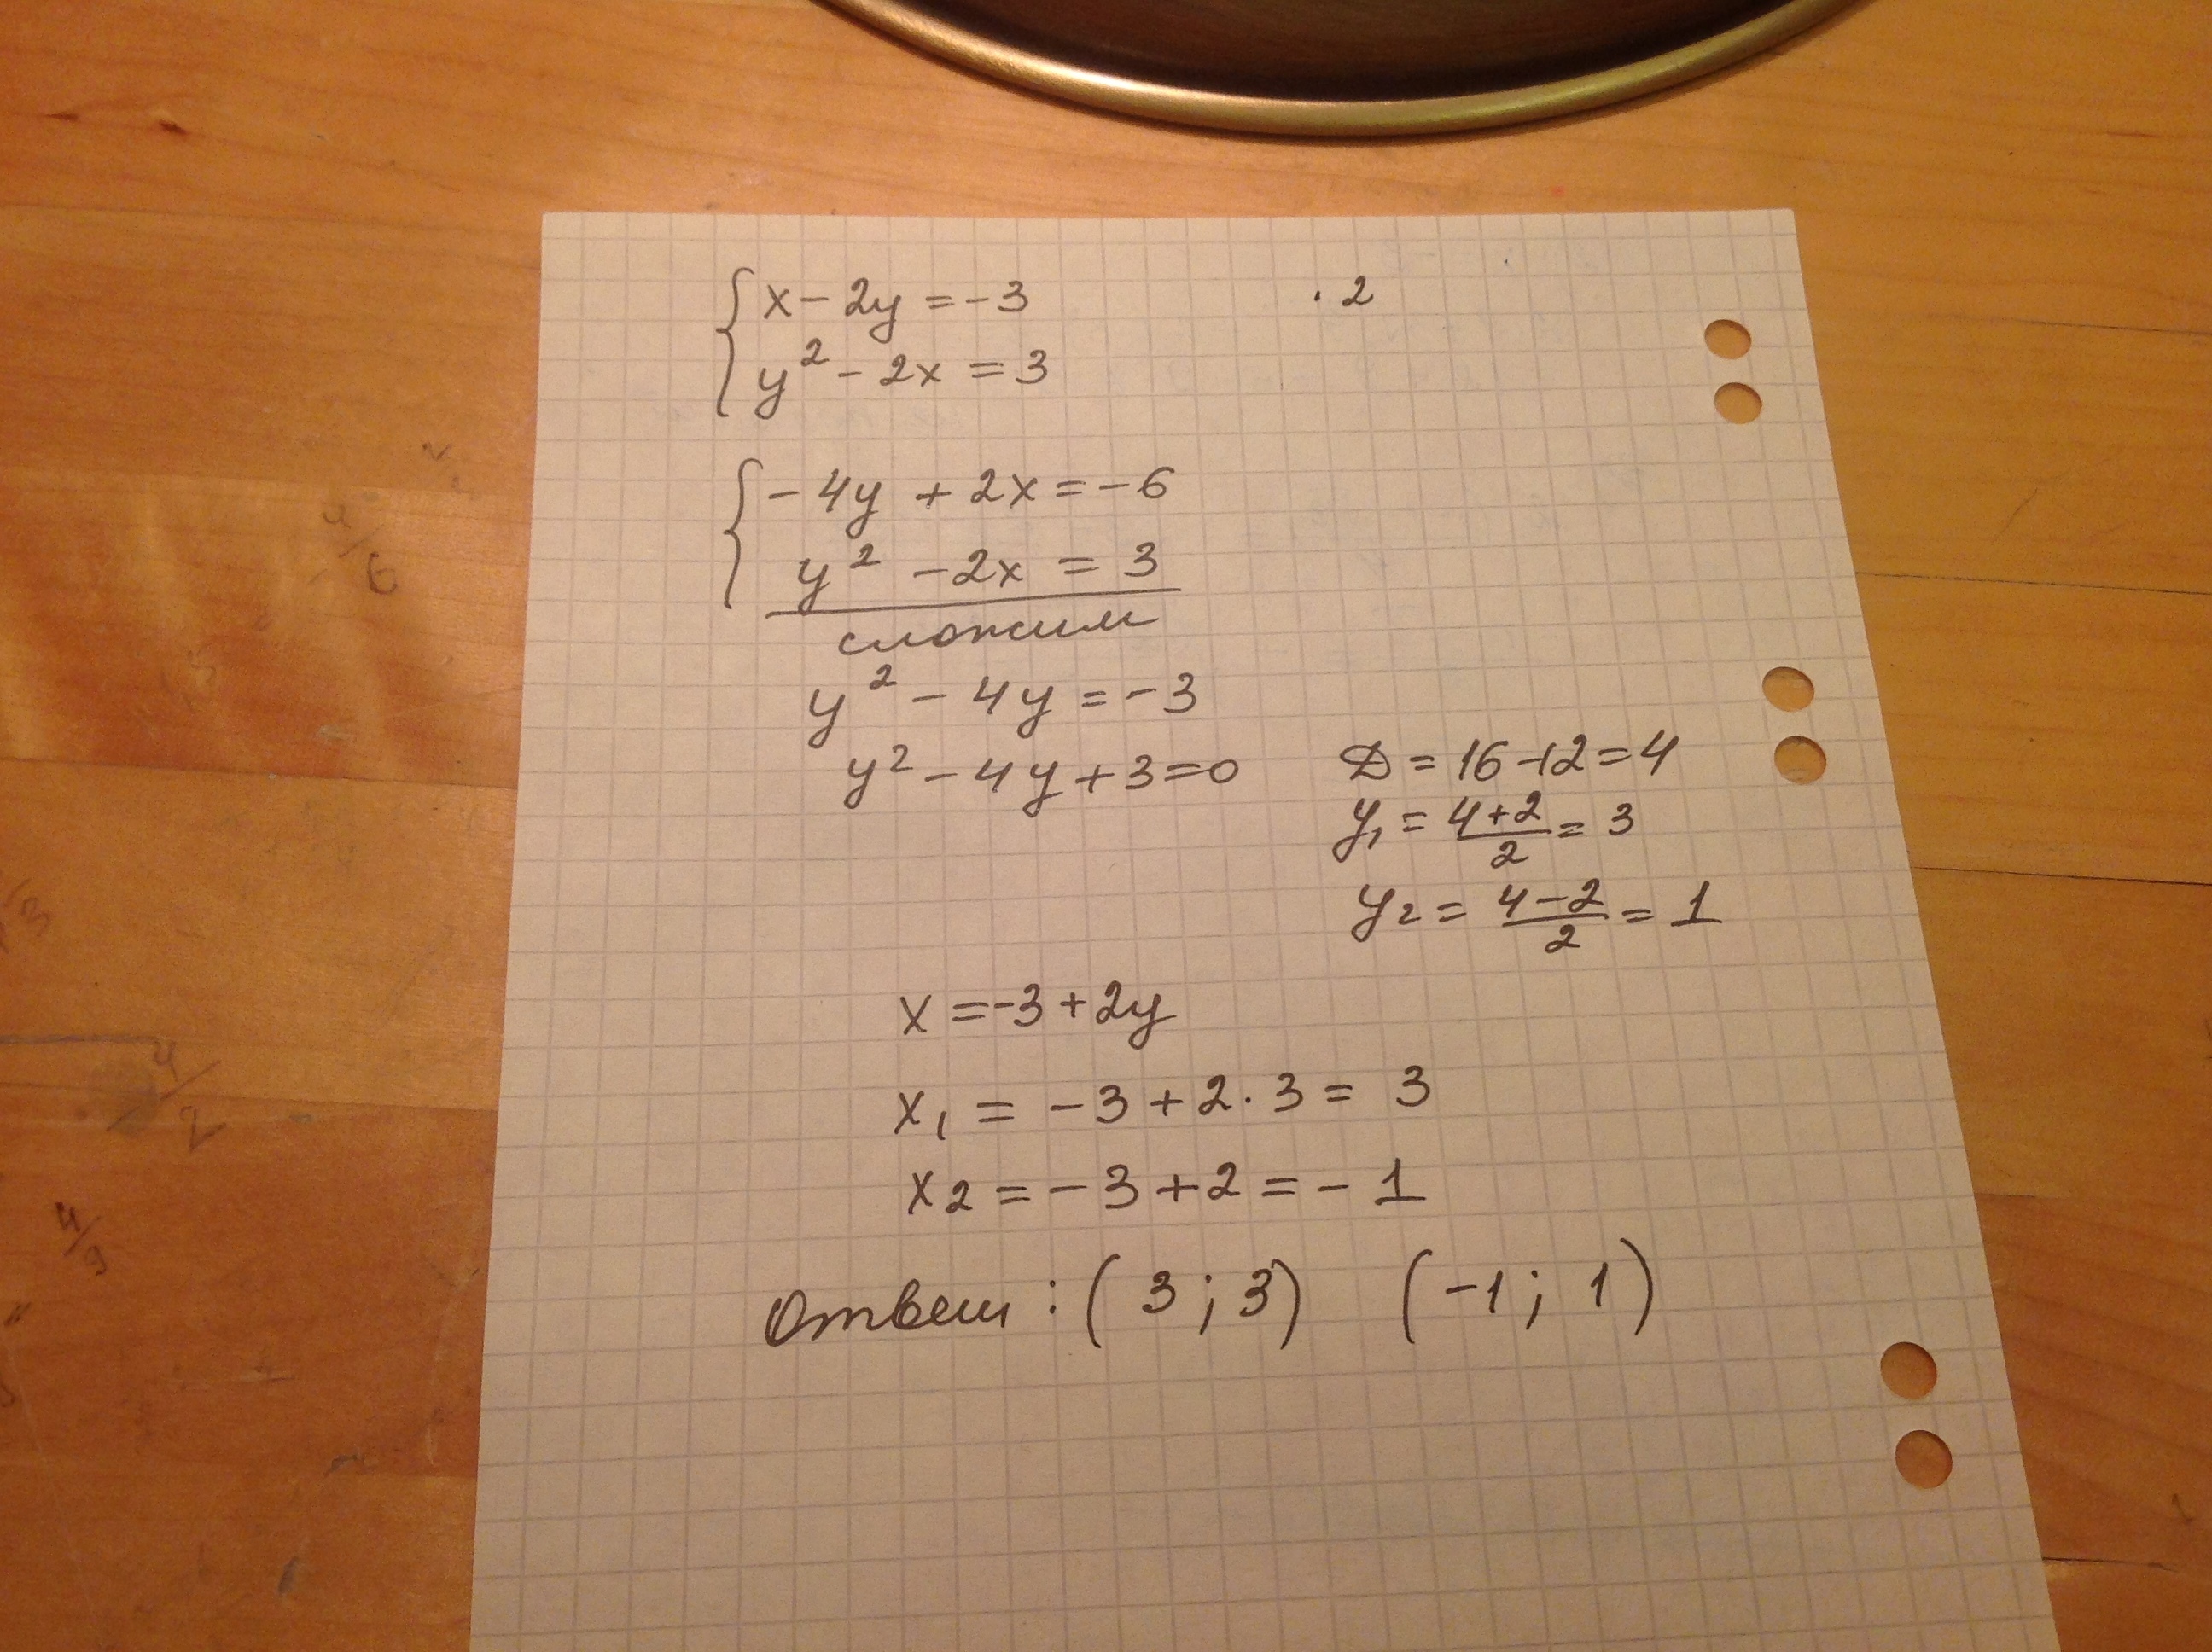 x - 2y = -3 · 2
y² - 2x = 3
-4y + 2x = -6
y² - 2x = 3
сложим
y² - 4y = -3
y² - 4y + 3 = 0
D = 16 - 12 = 4
y₁ = (4+2)/2 = 3
y₂ = (4-2)/2 = 1
x = -3 + 2y
x₁ = -3 + 2 · 3 = 3
x₂ = -3 + 2 = -1
Ответ : ( 3 ; 3 ) ( -1 ; 1 )